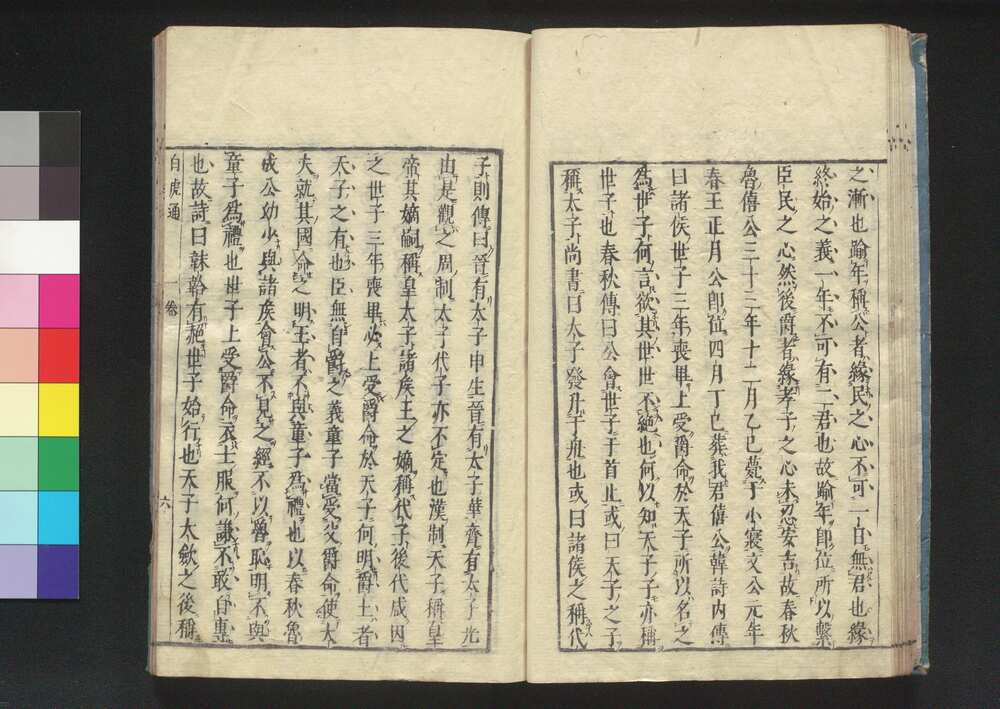 之漸也踰年稱公者緣民之心不可一日無君也緣
終始之義一年不可有二君也故踰年即位所以繫
臣民之心然後爵者緣孝子之心未忍安吉故春秋
魯僖公三十三年十二月乙巳薨于小寢文公元年
春王正月公即位四月丁巳葬我君僖公韓詩内傳
曰諸侯世子三年喪畢上受爵命於天子所以名之
爲世子何言欲其世世不絶也何以知天子子亦稱
世子也春秋傳曰公會世子于首止或曰天子之子
稱太子尚書曰太子發升于舟也或曰諸侯之稱代
子則傳曰晉有太子申生晉有太子華齊有太子光
由是觀之周制太子代子亦不定也漢制天子稱皇
帝其嫡嗣稱皇太子諸侯王之嫡稱代子後代咸因
之世子三年喪畢必上受爵命於天子何明爵土者
天子之有也臣無自爵之義童子當受父爵命使大
夫就其國命之明王者不與童子爲禮也以春秋魯
成公幼少與諸侯會公不見之經不以魯恥明不與
童子爲禮也世子上受爵命衣士服何謙不敢自專
也故詩曰韎韐有赩世子始行也天子太斂之後稱
白虎通 一卷 六